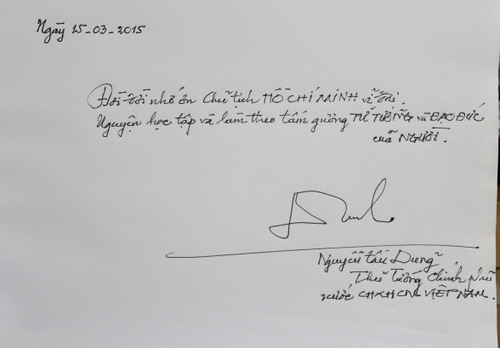 Ngày 15-03-2015
Đời đời nhớ ơn Chủ tịch HỒ CHÍ MINH vĩ đại.
Nguyện học tập và làm theo tấm gương TƯ TƯỞNG và ĐẠO ĐỨC
của NGƯỜI.
Nguyễn Tấn Dũng
Thủ Tướng Chính phủ
nước CHXHCN VIỆT NAM.